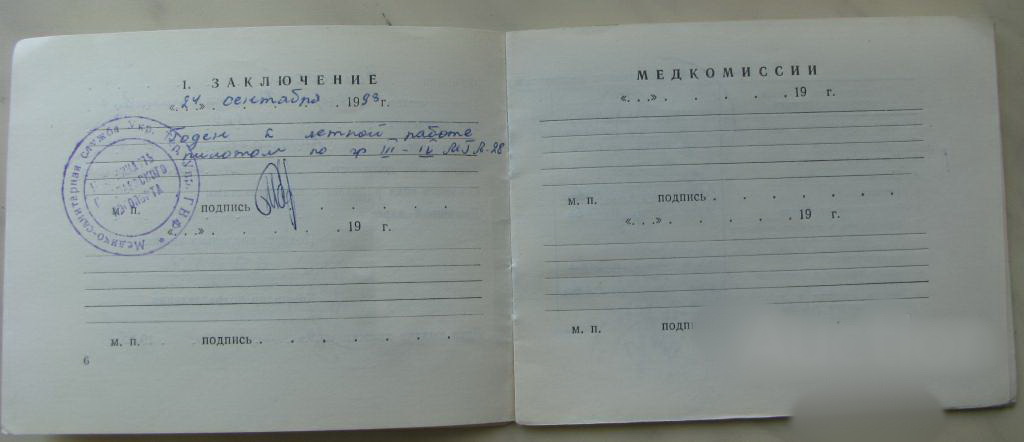 1. ЗАКЛЮЧЕНИЕ
«24» сентября 1983 г.
Годен к летной работе
пилотом по гр III - IV
Медико-санитарная служба Укр.
м. п. подпись
«. . .» . . . . . . 19 г.
м. п. . . подпись . . . . . . .
6
МЕДКОМИССИИ
«. . .» . . . . . 19 г.
м. п. подпись . . . . . .
«. . .» . . . . . 19 г.
м. п.